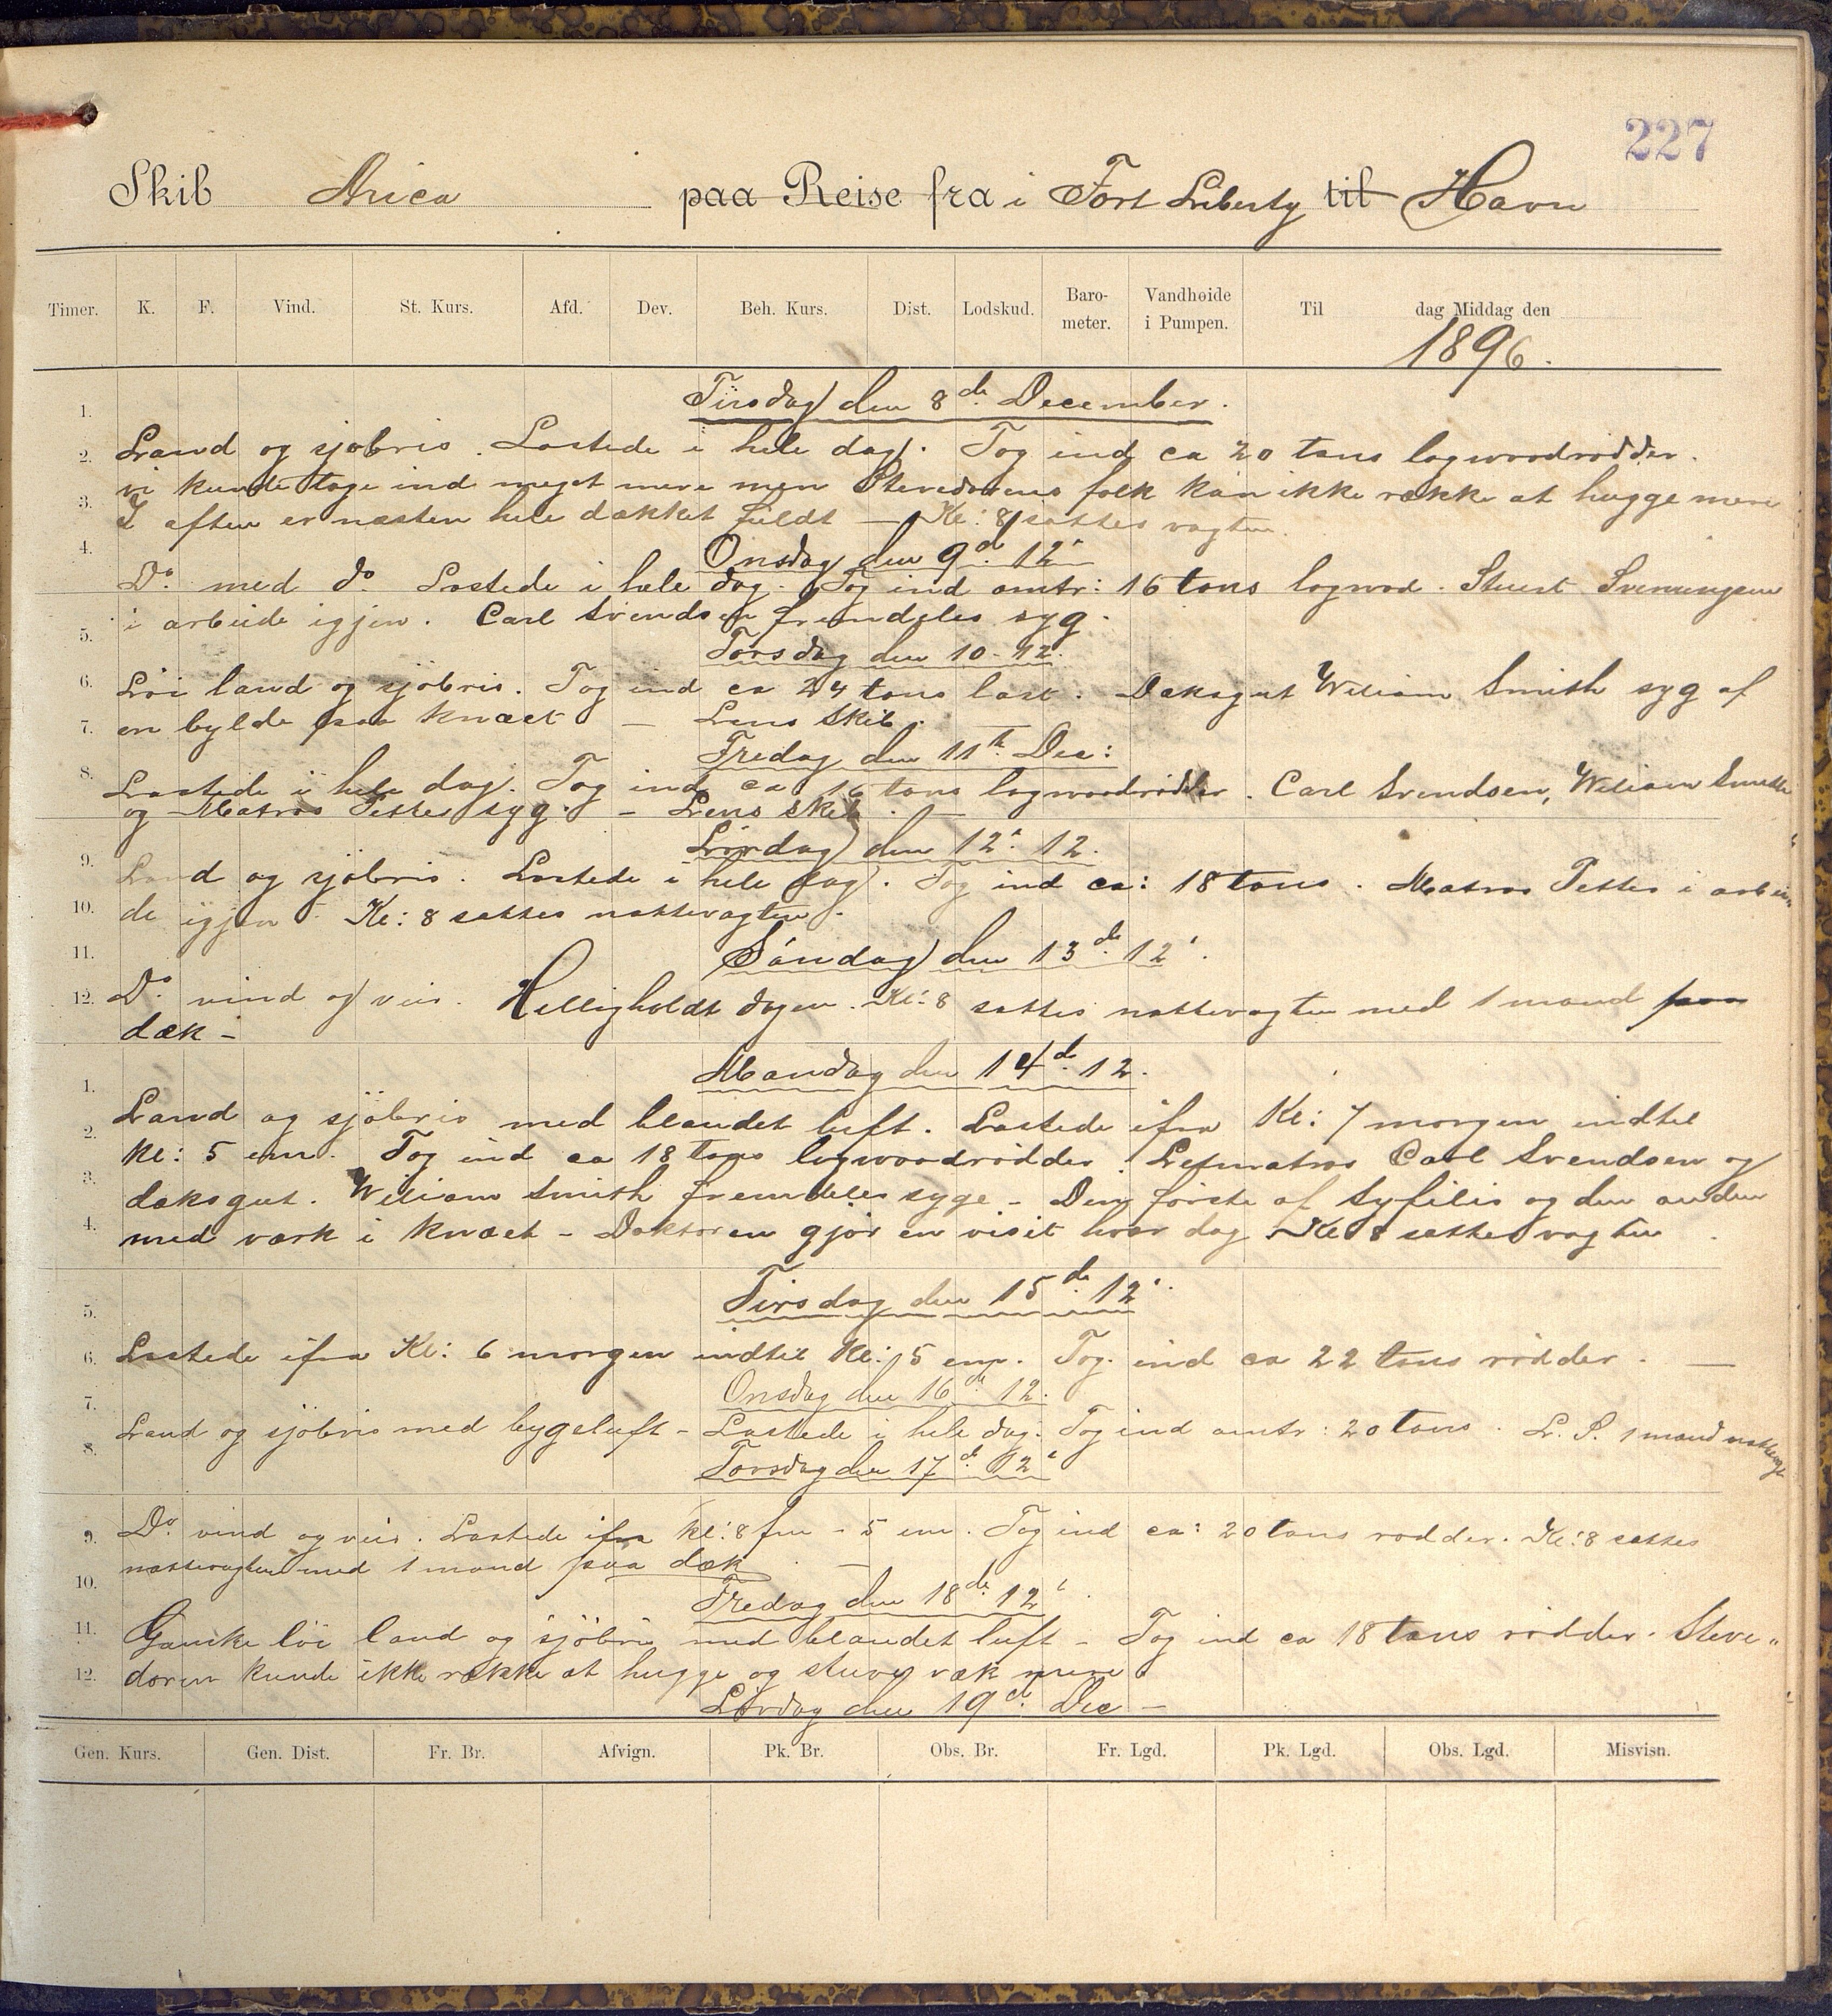 227
Skib Arica paa Reise fra i Fort Liberty til Havn
Timer. K. F. Vind. St. Kurs. Afd. Dev. Beh. Kurs. Dist. Lodskud. Baro-meter. Vandhøide i Pumpen. Til dag Middag den
1896.
Tirsdag den 8de December.
1.
2. Land og sjøbris. Lastede i hele dag. Tog ind ca 20 tons logwoodrødder.
vi kunde tage ind meget mere men Stevedorens folk kan ikke række at hugge mere
3. I aften er næsten hele dækket fuldt — Kl: 8 sattes vagten.
4. Onsdag den 9d. 12
Do. med do. Lastede i hele dag. Tog ind omtr: 16 tons logwod. Stuert Svenningsen
5. i arbeide igjen. Carl Svendsen fremdeles syg.
Torsdag den 10-12.
6. Løi land og sjøbris. Tog ind ca 24 tons last. Daksgut Wiliam Smith syg af
7. en bylde paa knæet — Lens Skib.
Fredag den 11te Dec:
8. Lastede i hele dag. Tog ind ca 16 tons logwoodrødder. Carl Svendsen, Wiliam Smith
og Matros Petter syg. — Lens skib. —
Lørdag den 12. 12.
9. Land og sjøbris. Lastede i hele dag. Tog ind ca: 18 tons. Matros Petter i arbei
10. de igjen. Kl: 8 sattes nattevagten.
11. Søndag den 13de 12.
12. Do. vind og veir. Helligholdt dagen. Kl: 8 sattes nattevagten med 1 mand paa
dæk —
Mandag den 14d. 12.
1.
2. Land og sjøbris med blandet luft. Lastede ifra Kl: 7 morgen indtil
kl: 5 em. Tog ind ca 18 tons logwoodrødder. Letmatros Carl Svendsen og
3. daksgut. Wiliam Smith fremdeles syge — Den første af Syfilis og den anden
4. med værk i knæet — Doktoren gjør en visit hver dag. Kl 8 sattes vagten.
5. Tirsdag den 15de 12.
6. Lastede ifra Kl: 6 morgen indtil Kl: 5 em. Tog ind ca 22 tons rødder. —
7. Onsdag den 16d. 12.
Land og sjøbris med bygeluft — Lastede i hele dag. Tog ind omtr: 20 tons. L. S. 1 mand nattevagt
8. Torsdag den 17d. 12
9. Do. vind og veir. Lastede ifra kl: 8 fm - 5 em. Tog ind ca: 20 tons rødder. Kl: 8 sattes
nattevagten med 1 mand paa dæk. —
10. Fredag den 18de 12
11. Ganske løi land og sjøbris med blandet luft — Tog ind ca 18 tons rødder. Steve„
12. doren kunde ikke række at hugge og stuve væk mere.
Lørdag den 19d. Dec —
Gen. Kurs. Gen. Dist. Fr. Br. Afvign. Pk. Br. Obs. Br. Fr. Lgd. Pk. Lgd. Obs. Lgd. Misvisn.